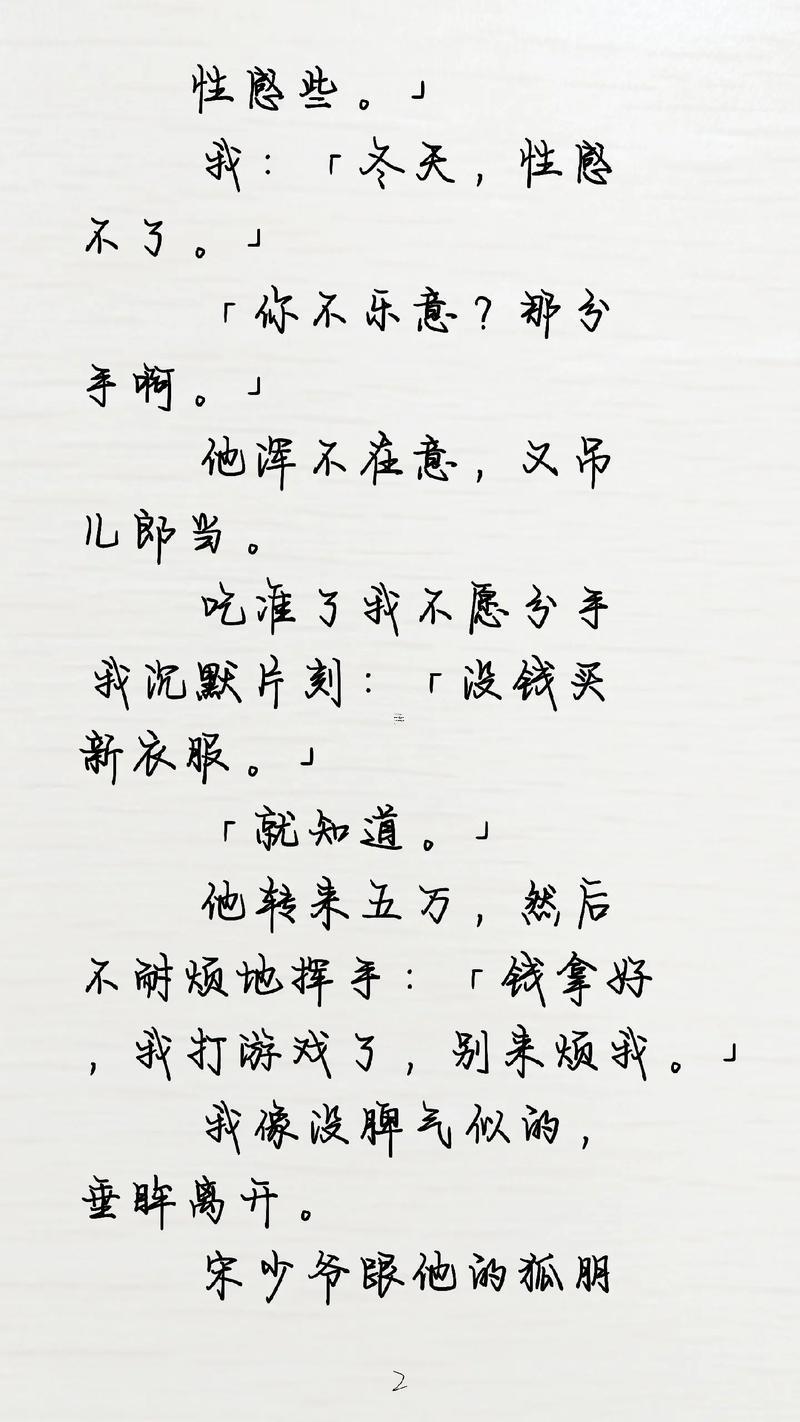 性感些。」
我：「冬天，性感
不了。」
「你不乐意？那分
手啊。」
他浑不在意，又吊
儿郎当。
吃准了我不愿分手
我沉默片刻：「没钱买
新衣服。」
「就知道。」
他转来五万，然后
不耐烦地挥手：「钱拿好
，我打游戏了，别来烦我。」
我像没脾气似的，
垂眸离开。
宋少爷跟他的狐朋
2